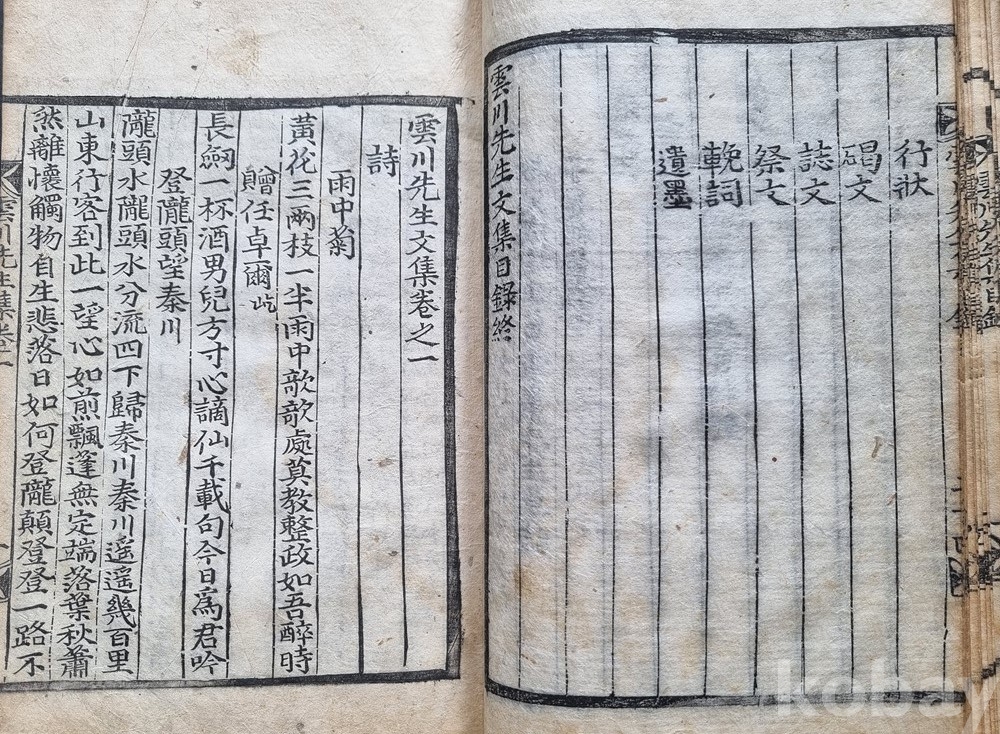 行狀
碣文
誌文
祭文
輓詞
遺墨
雲川先生文集目錄終
雲川先生文集卷之一
詩
雨中菊
黃花三兩枝一半雨中欹欹處莫教整政如吾醉時
贈任卓爾屹
長劒一杯酒男兒方寸心謫仙千載句今日爲君吟
登隴頭望秦川
隴頭水隴頭水分流四下歸秦川秦川遥遥幾百里
山東行客到此一望心如煎飄蓬無定端落葉秋蕭
然離懷觸物自生悲落日如何登隴顛登登一路不
雲川先生集卷
kobay